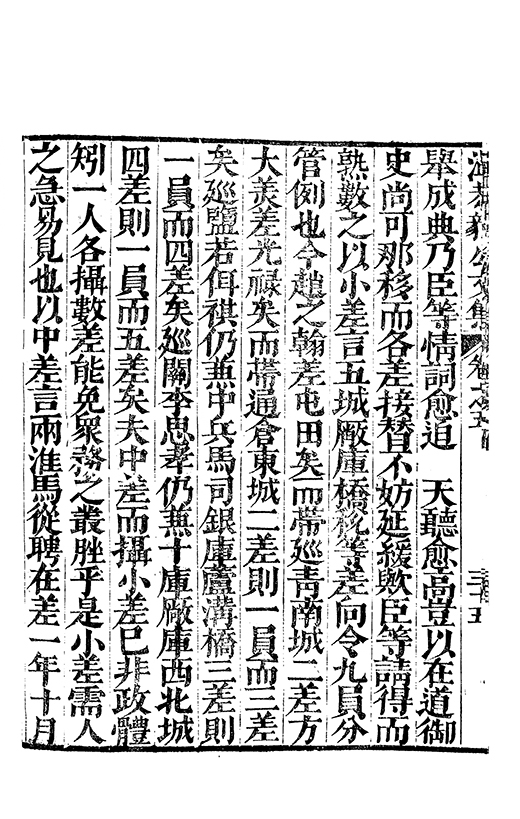 溫恭毅公文集 卷之五 三十五
舉成典乃臣等情詞愈迫　天聽愈高豈以在道御
史尚可那移而各差接替不妨延緩歟臣等請得而
熟數之以小差言五城廠庫橋稅等差向令九員分
管例也今趙之翰差屯田矣而帶廵青南城二差方
大美差光祿矣而帶通倉東城二差則一員而三差
矣廵鹽若佴祺仍兼中兵馬司銀庫蘆溝橋三差則
一員而四差矣廵關李思孝仍兼十庫廠庫西北城
四差則一員而五差矣夫中差而攝小差已非政體
矧一人各攝數差能免衆務之叢脞乎是小差需人
之急易見也以中差言兩淮馬從聘在差一年十月